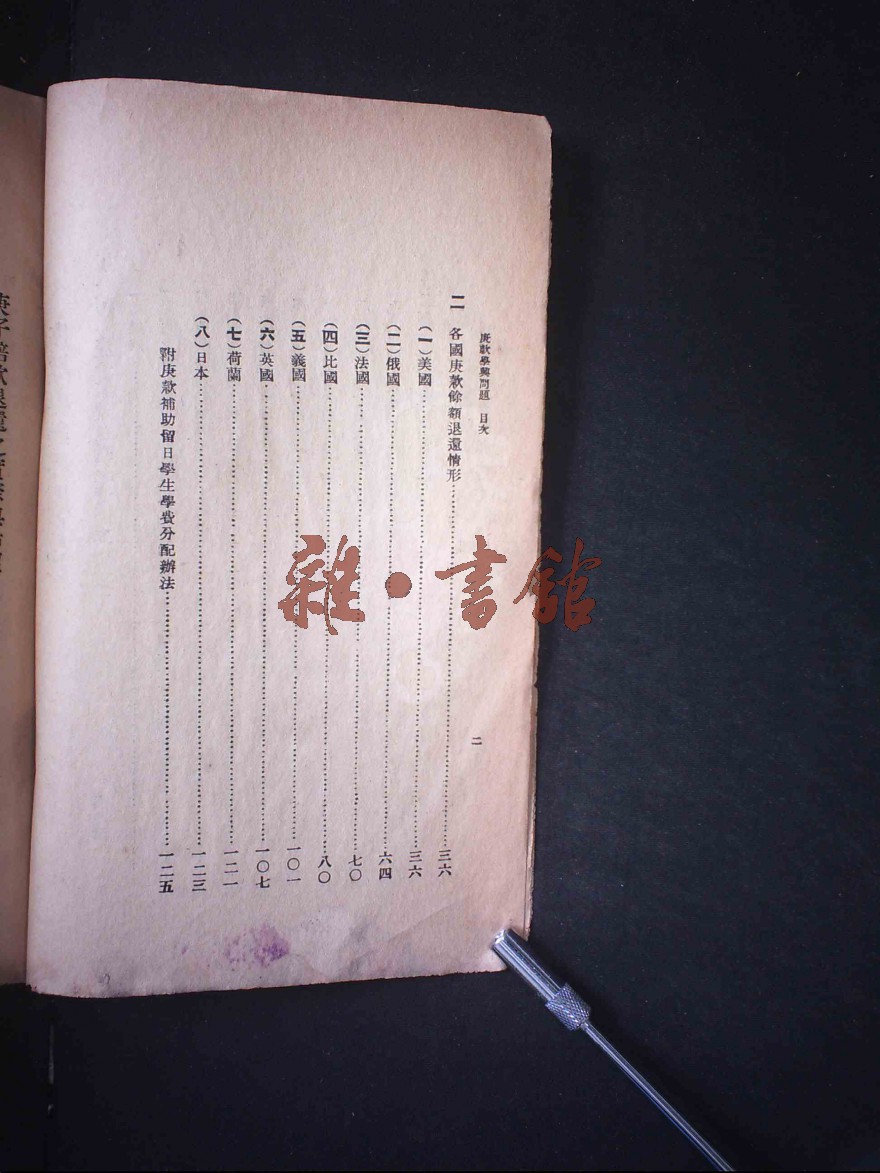 庚款學與問題　目次
二　各國庚款餘額退還情形……三六
（一）美國……三六
（二）俄國……六四
（三）法國……七〇
（四）比國……八〇
（五）義國……一〇一
（六）英國……一〇七
（七）荷蘭……一二一
（八）日本……一二三
附庚款補助留日學生學費分配辦法……一二五
二
雜·書館